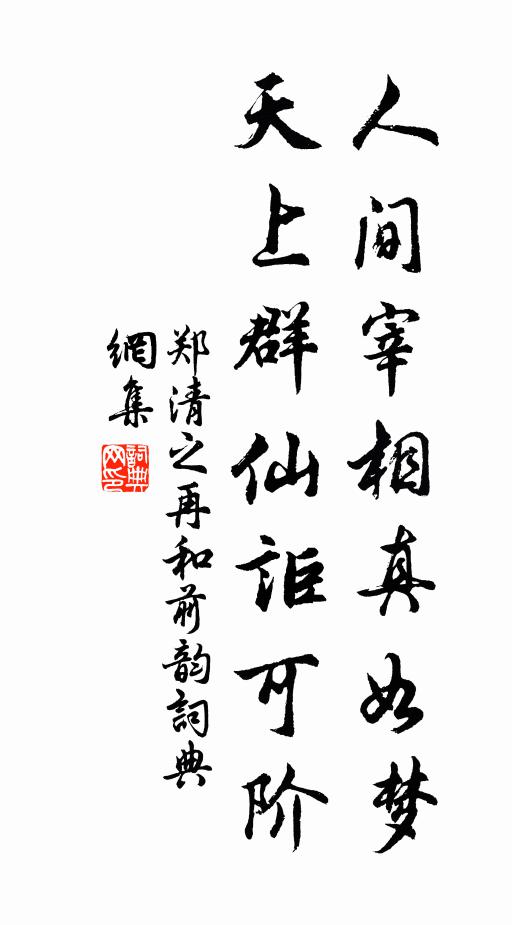 人间宰相真如梦
天上群仙讵可阶
郑清之再和前韵詞典
網集
詞典
网印